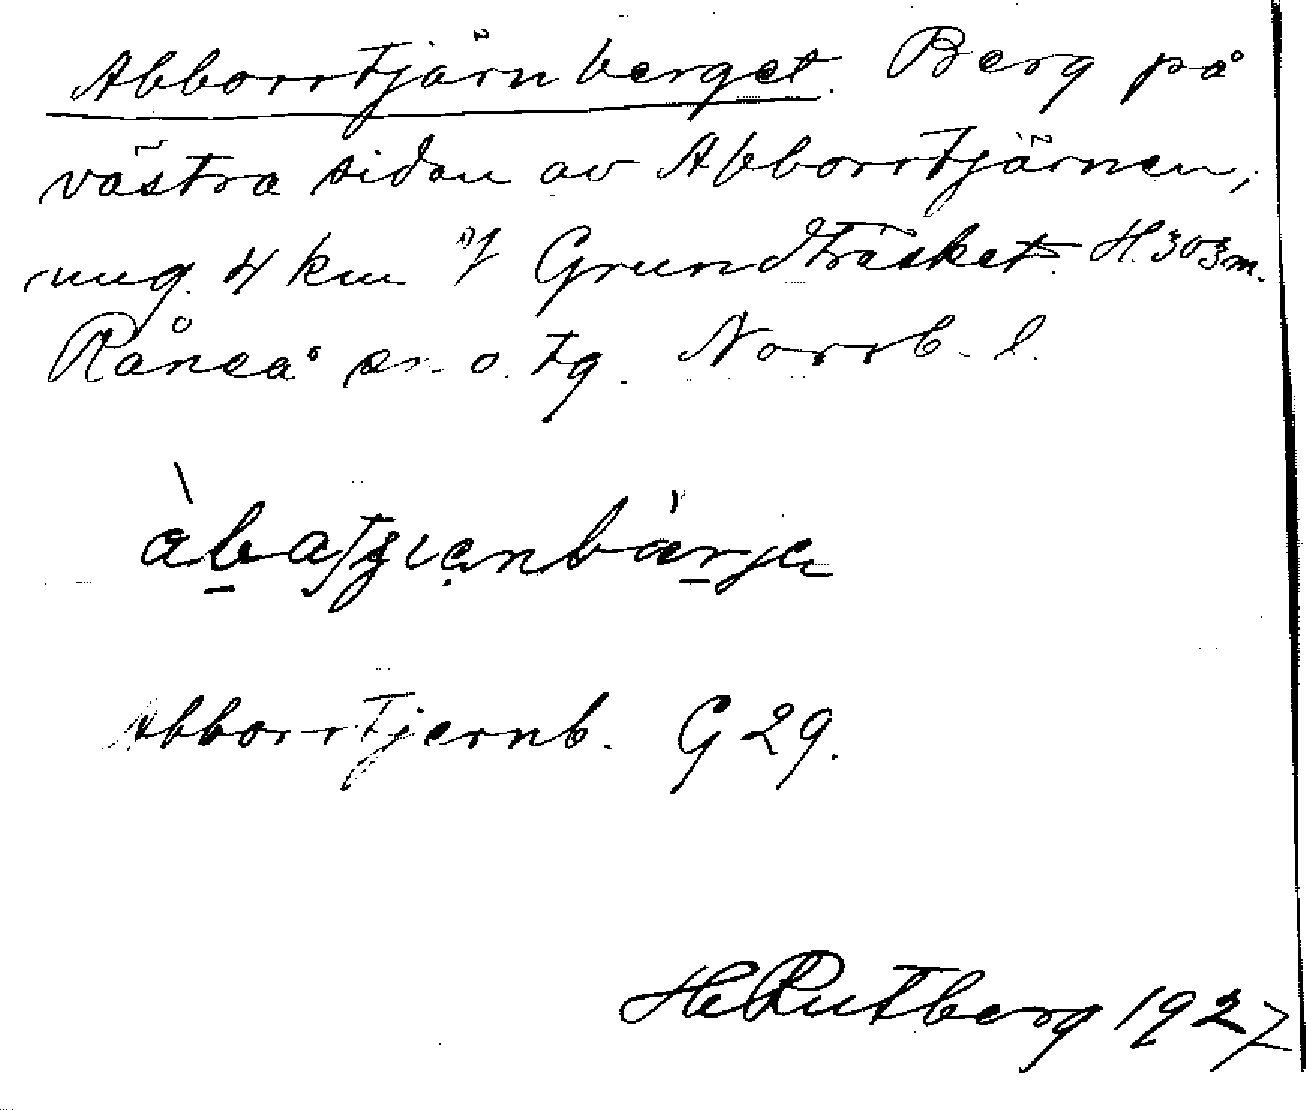 Abborrtjärnberget. Berg på
västra sidan av Abborrtjärnen,
nug. 4 km Grundträsket. H. 303 m.
Råneå sn. o. tg. Norrb. l.
Abborrtjernb. G 29.
H Rutberg 1927